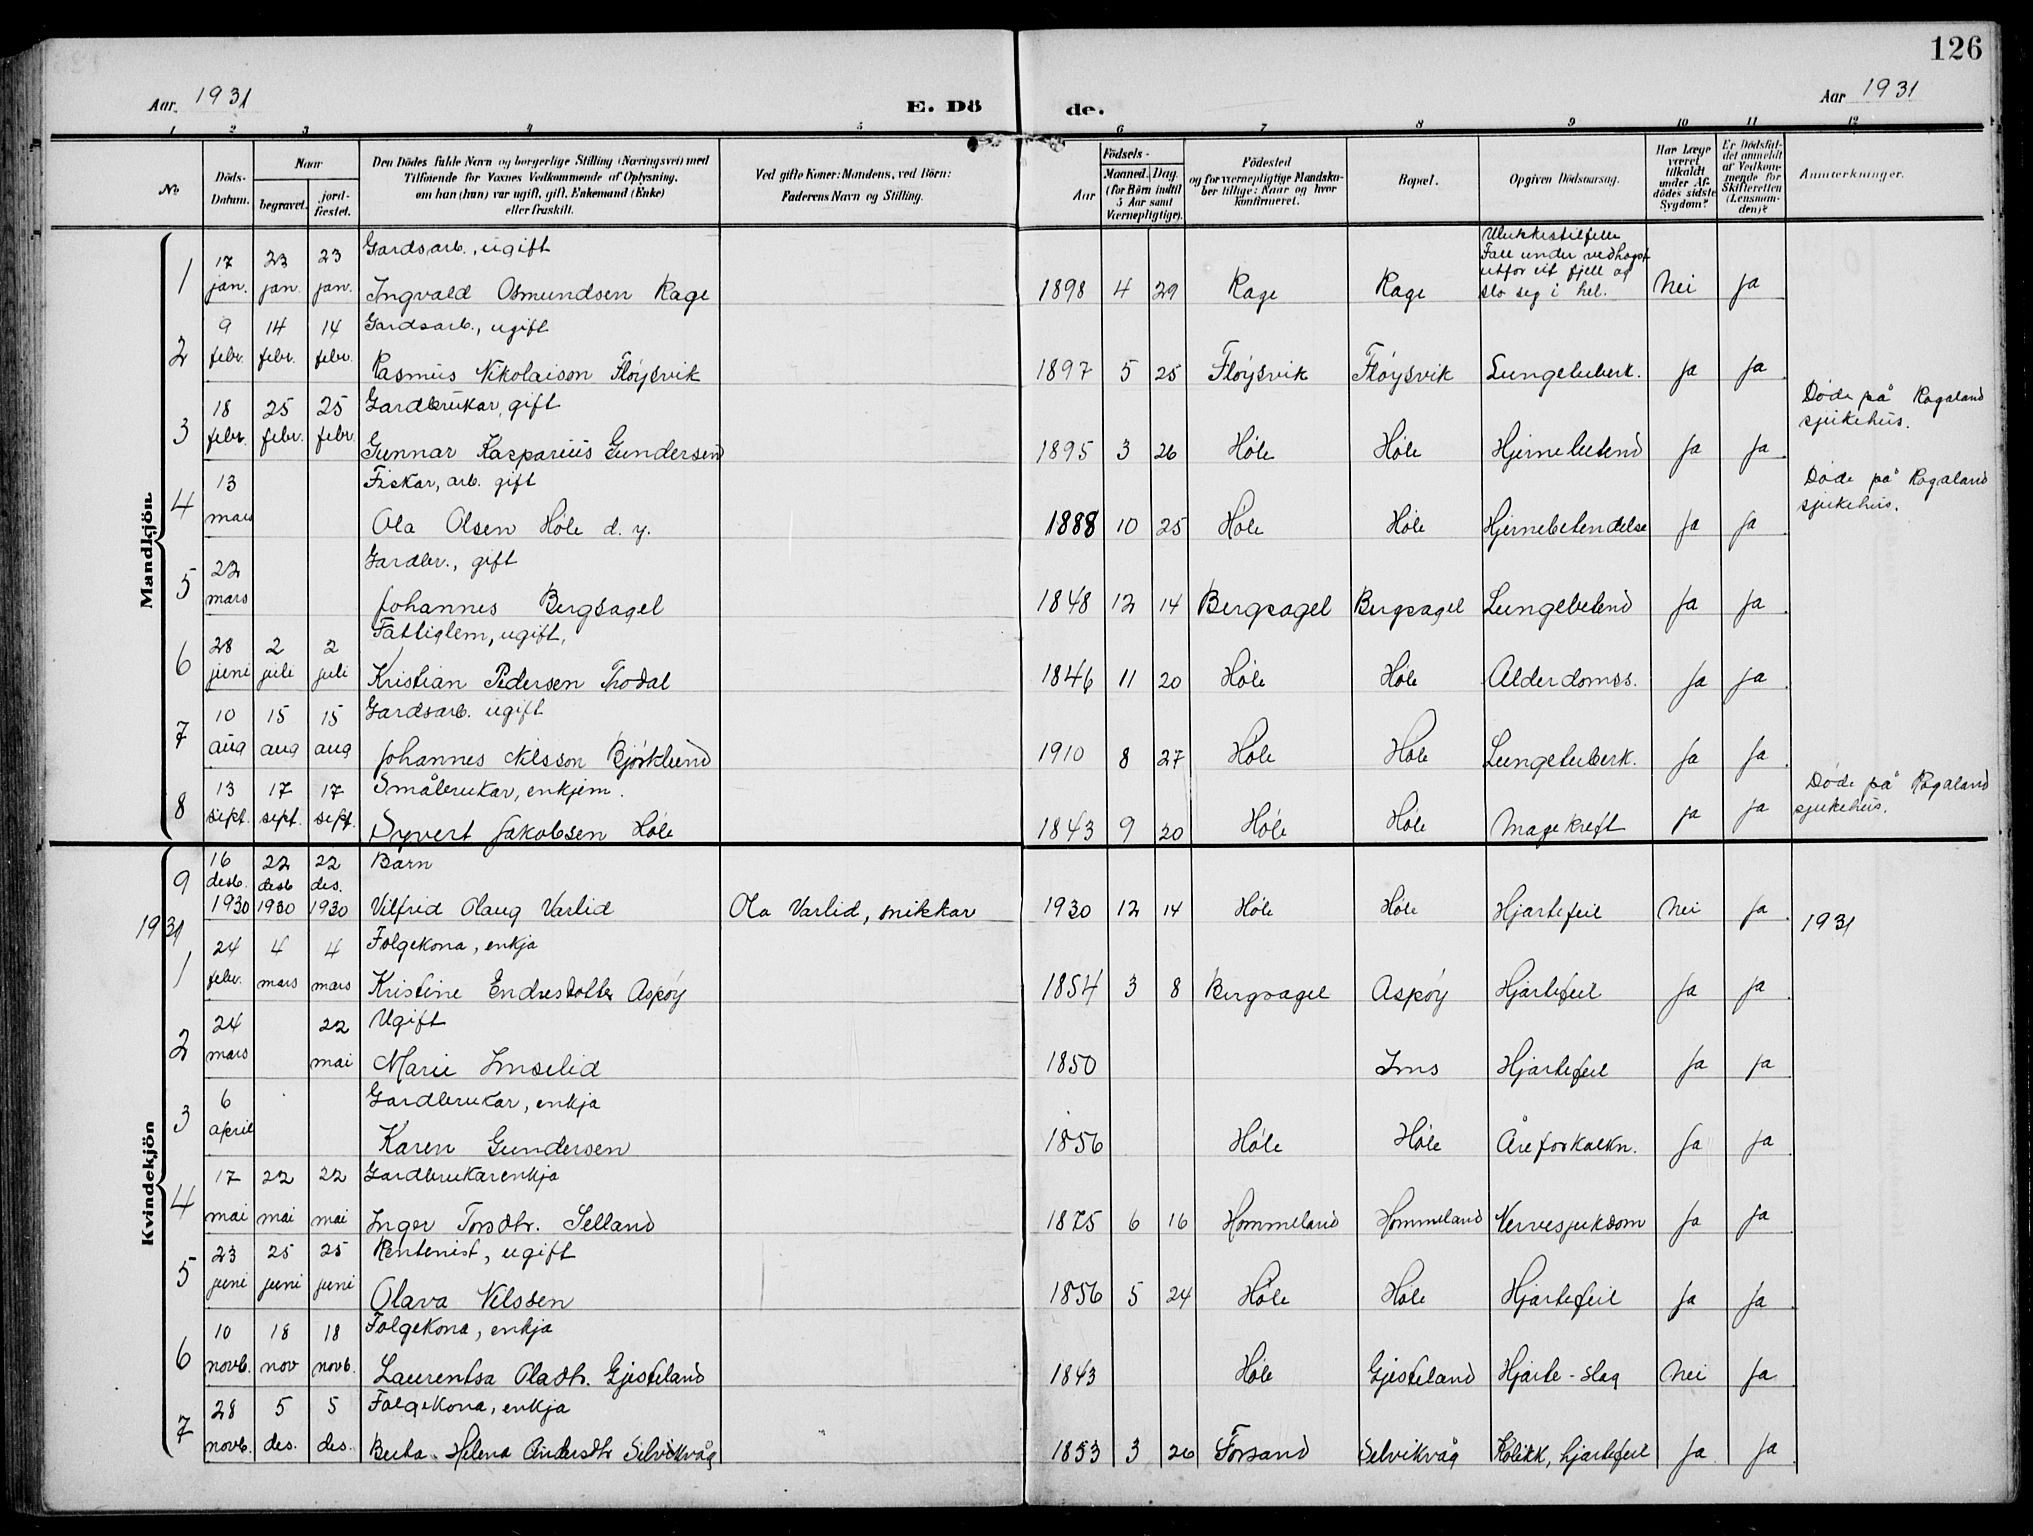 126
Aar 1931 E. Dö de. Aar 1931
1 2 3 4 5 6 7 8 9 10 11 12
No
Döds-Datum.
Naar
begravet.
jord-fæstet.
Den Dödes fulde Navn og borgerlige Stilling (Næringsvei) med
Tilföiende for Voxnes Vedkommende af Oplysning,
om han (hun) var ugift, gift, Enkemand (Enke)
eller fraskilt.
Ved gifte Koner: Mandens, ved Börn:
Faderens Navn og Stilling.
Födsels-
Aar
Maaned. Dag.
(for Börn indtil
5 Aar samt
Værnepligtige).
Födested
og for værnepligtige Mandska-
ber tillige: Naar og hvor
konfirmeret.
Bopæl.
Opgiven Dödsaarsag.
Har Læge
været
tilkaldt
under Af-
dödes sidste
Sygdom?
Er Dödsfal-
det anmeldt
af Vedkom-
mende for
Skifteretten
(Lensman-
den)?
Anmerkninger.
Mandkjön
1 17 jan. 23 jan. 23 jan. Gardsarb., ugift
Ingvald Osmundsen Rage 1898 4 29 Rage Rage Ulukkestilfelle Fall under vedhogst utfor eit fjell og slo seg i hel. Nei Ja
2 9 febr. 14 febr. 14 febr. Gardsarb., ugift
Rasmus Nikolaison Fløysvik 1897 5 25 Fløysvik Fløysvik Lungetuberk. Ja Ja
3 18 febr. 25 febr. 25 febr. Gardbrukar, gift
Gunnar Kasparius Gundersen 1895 3 26 Høle Høle Hjernebetend Ja Ja Døde på Rogaland sjukehus.
4 13 mars Fiskar, arb. gift
Ola Olsen Høle d. y. 1888 10 25 Høle Høle Hjernebetendelse Ja Ja Døde på Rogaland sjukehus.
5 22 mars Gardbr., gift
Johannes Bergsagel 1848 12 14 Bergsagel Bergsagel Lungebetend Ja Ja
6 28 juni 2 juli 2 juli Fattiglem, ugift,
Kristian Pedersen Trodal 1846 11 20 Høle Høle Alderdomss. Ja Ja
7 10 aug 15 aug 15 aug Gardsarb. ugift
Johannes Nilsson Bjørklund 1910 8 27 Høle Høle Lungetuberk. Ja Ja
8 13 sept. 17 sept. 17 sept. Småbrukar, enkjem.
Syvert Jakobsen Høle 1843 9 20 Høle Høle Magekreft Ja Ja Døde på Rogaland sjukehus.
Kvindekjön
9 16 desb. 1930 22 desb 1930 22 des. 1930 Barn
Vilfrid Olaug Varlid Ola Varlid, snikkar 1930 12 14 Høle Høle Hjartefeil Nei Ja
1931 1931
1 24 febr. 4 mars 4 mars Folgekona, enkja
Kristine Endresdotter Aspøy 1854 3 8 Bergsagel Aspøy Hjartefeil Ja Ja
2 24 mars 22 mai Ugift
Marie Imselid 1850 Ims Hjartefeil Ja Ja
3 6 april Gardbrukar, enkja
Karen Gundersen 1856 Høle Høle Åreforkalkn. Ja Ja
4 17 mai 22 mai 22 mai Gardbrukarenkja
Inger Torsdtr. Selland 1875 6 16 Hommeland Hommeland Nervesjukdom Ja Ja
5 23 juni 25 juni 25 juni Rentenist, ugift
Olava Nilssen 1856 5 24 Høle Høle Hjartefeil Ja Ja
6 10 novb. 18 nov 18 novb. Folgekona, enkja
Laurentsa Oladtr. Gjesteland 1843 Høle Gjesteland Hjarte-slag Nei Ja
7 28 novb. 5 des. 5 des. Folgekona, enkja
Berta Helena Andersdtr Selvikvåg 1853 3 26 Forsand Selvikvåg Kolikk, hjartefeil Ja Ja